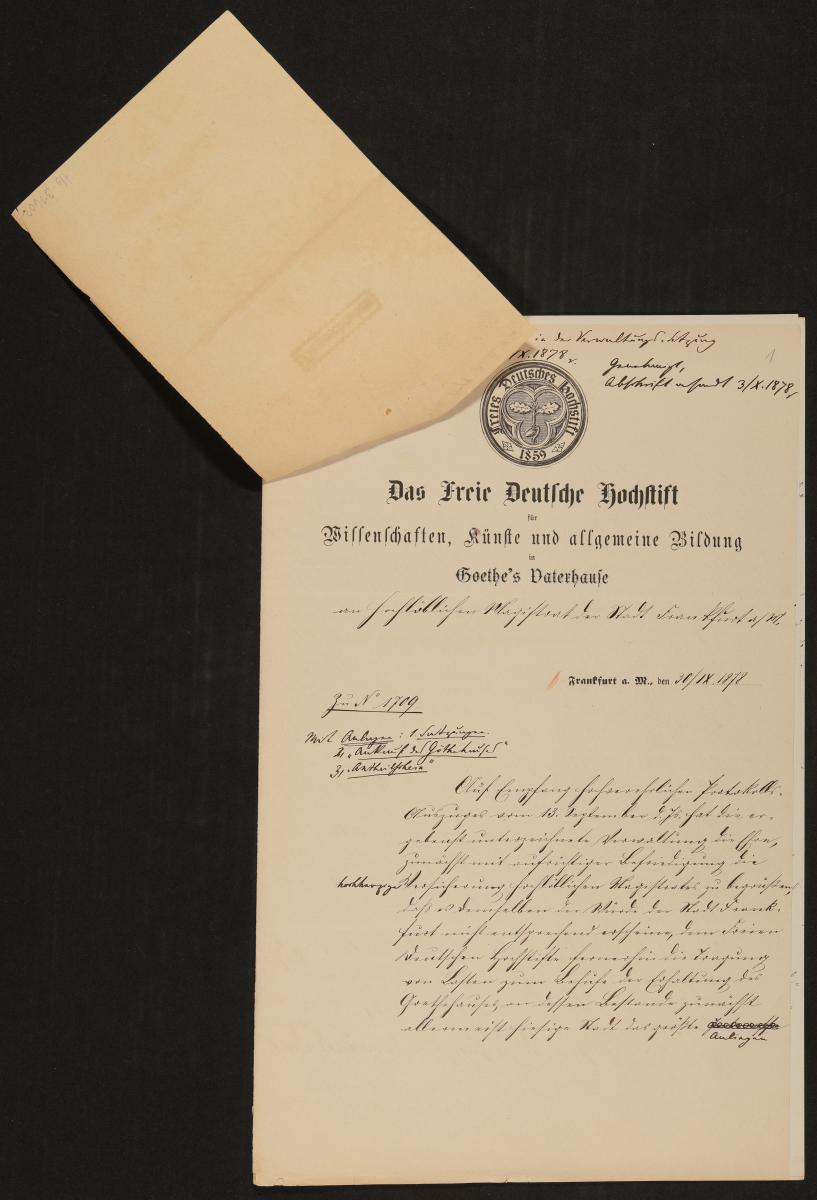 in der Verwaltungs-Sitzung
IX.1878
Genehmigt,
Abschrift 3/X.1878,
1
Freies Deutsches Hochstift
1859
Das Freie Deutsche Hochstift
für
Wissenschaften, Künste und allgemeine Bildung
in
Goethe's Vaterhause
an hochlöblichen Magistrat der Stadt Frankfurt a/M.
Frankfurt a. M., den 30/IX.1878
Zu No 1709
Mit Anlagen: 1, Satzungen.
2, „Ankauf des Göthehauses"
3, „Antheilschein"
Auf Empfang hochverehrlichen Protokolls-
Auszuges vom 13. September d. Js. hat die er-
gebenst unterzeichnete Verwaltung die Ehre,
zunächst mit aufrichtiger Befriedigung die
hochherzige Versicherung hochlöblichen Magistrates zu begrüßen,
daß es demselben der Würde der Stadt Frank-
furt nicht entsprechend erscheine, dem Freien
Deutschen Hochstifte fernerhin die Tragung
von Kosten zum Behufe der Erhaltung des
Goethehauses, an dessen Bestande zunächst
allermeist hiesige Stadt das größte
Anliegen